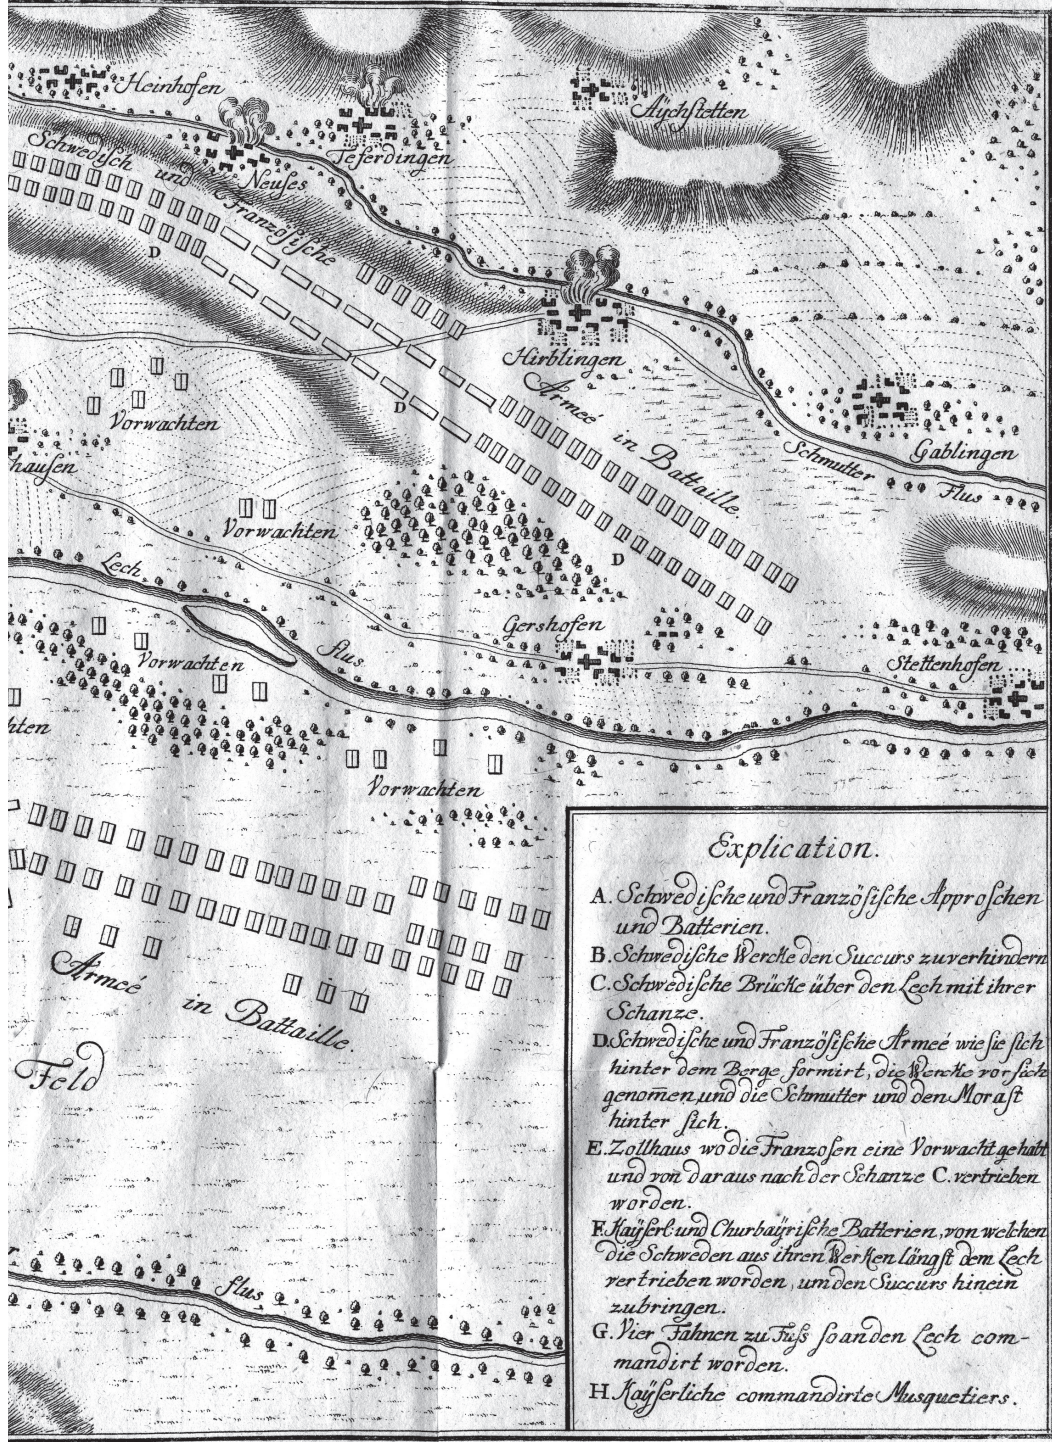 Heinhofen
Aychstetten
Teferdingen
Neuses
Schwedisch und Französische
D
Hirblingen
Armeé in Battaille
Gablingen
Schmutter Flus
D
Vorwachten
hausen
Vorwachten
D
Lech flus
Gershofen
Stettenhofen
Vorwachten
hten
Vorwachten
Armeé in Battaille.
Feld
flus
Explication.
A. Schwedische und Französische Approschen
und Batterien.
B. Schwedische Wercke den Succurs zuverhindern
C. Schwedische Brücke über den Lech mit ihrer
Schanze.
D. Schwedische und Französische Armeé wie sie sich
hinter dem Berge formirt, die Wercke vor sich
genom̅en, und die Schmutter und den Morast
hinter sich.
E. Zollhaus wo die Franzosen eine Vorwacht gehabt
und von daraus nach der Schanze C. vertrieben
worden.
F. Kaÿserl: und Churbaÿrische Batterien, von welchen
die Schweden aus ihren Werken längst dem Lech
vertrieben worden, um den Succurs hinein
zubringen.
G. Vier Fahnen zu Fuss so an den Lech com-
mandirt worden.
H. Kaÿserliche commandirte Musquetiers.